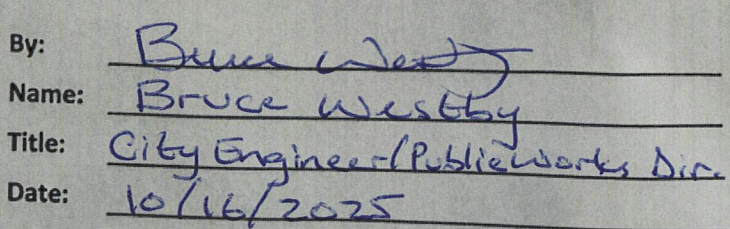 By: Bruce Westby
Name: Bruce Westby
Title: City Engineer/Public Works Dir.
Date: 10/16/2025